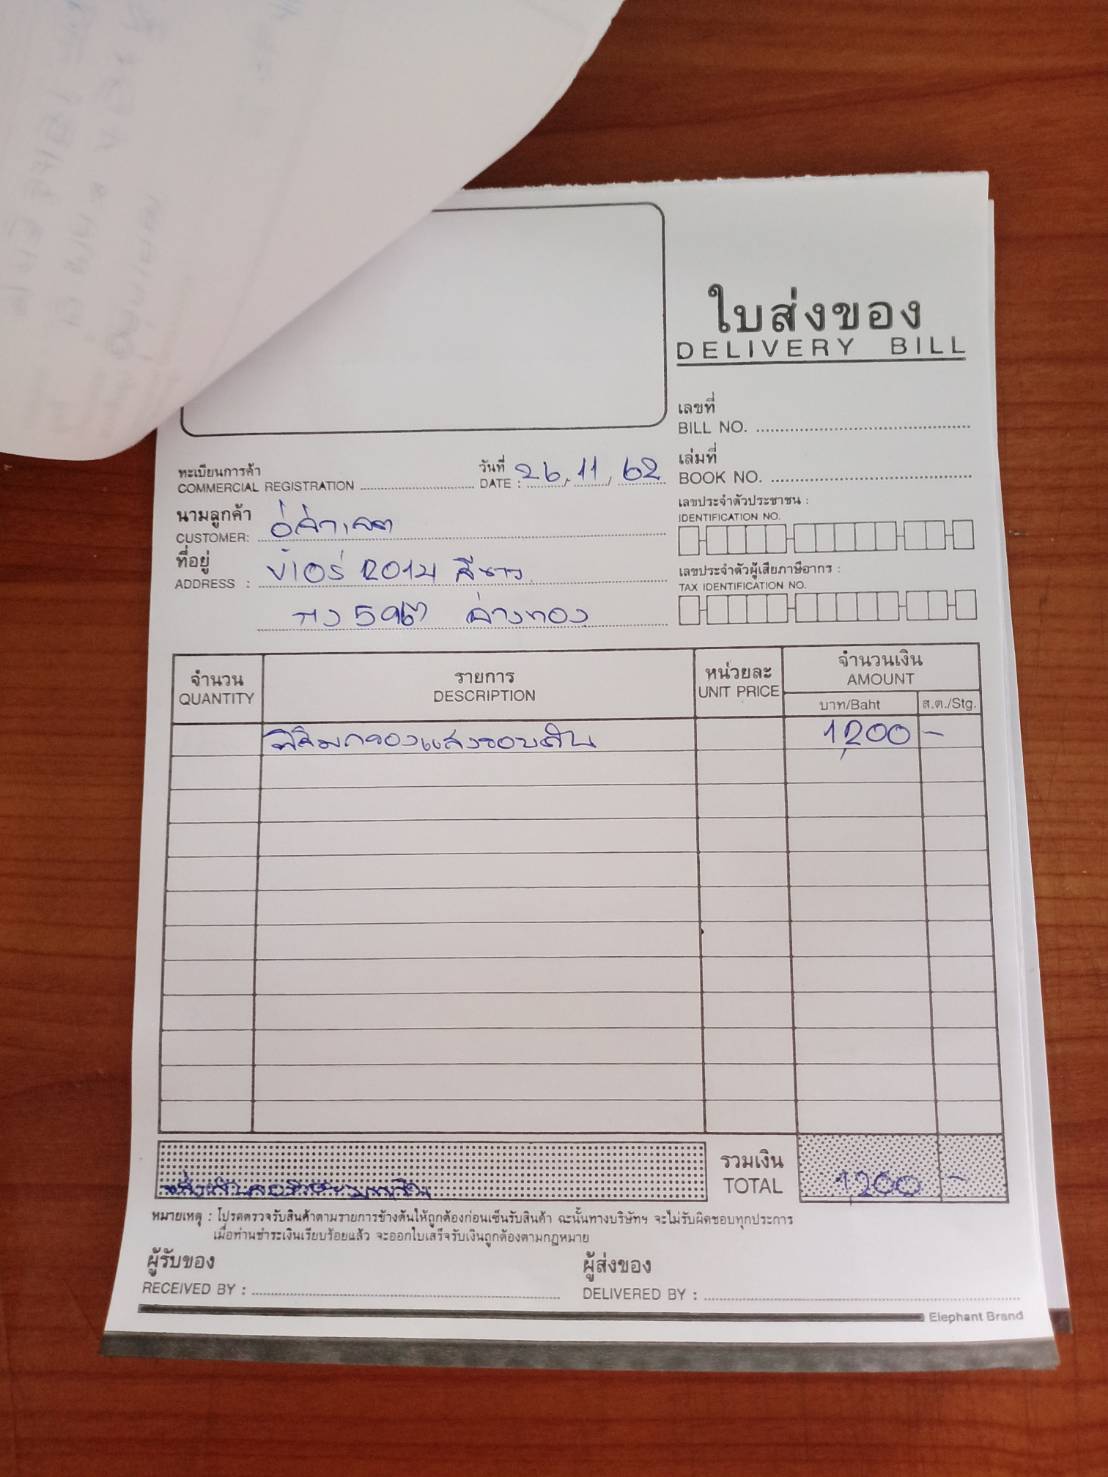 ใบส่งของ
DELIVERY BILL
เลขที่
BILL NO.
ทะเบียนการค้า
COMMERCIAL REGISTRATION
วันที่
DATE : 26, 11, 62
เล่มที่
BOOK NO.
นามลูกค้า
CUSTOMER: อู่
เลขประจำตัวประชาชน :
IDENTIFICATION NO.
ที่อยู่
ADDRESS : 2014 สีขาว
กง 5967 อ่างทอง
เลขประจำตัวผู้เสียภาษีอากร :
TAX IDENTIFICATION NO.
จำนวน
QUANTITY
รายการ
DESCRIPTION
หน่วยละ
UNIT PRICE
จำนวนเงิน
AMOUNT
บาท/Baht
ส.ต./Stg.
ฟิล์มกรองแสงรอบคัน 1,200 -
รวมเงิน
TOTAL
1,200 -
หมายเหตุ : โปรดตรวจรับสินค้าตามรายการข้างต้นให้ถูกต้องก่อนเซ็นรับสินค้า ฉะนั้นทางบริษัทฯ จะไม่รับผิดชอบทุกประการ
เมื่อท่านชำระเงินเรียบร้อยแล้ว จะออกใบเสร็จรับเงินถูกต้องตามกฎหมาย
ผู้รับของ
RECEIVED BY :
ผู้ส่งของ
DELIVERED BY :
Elephant Brand